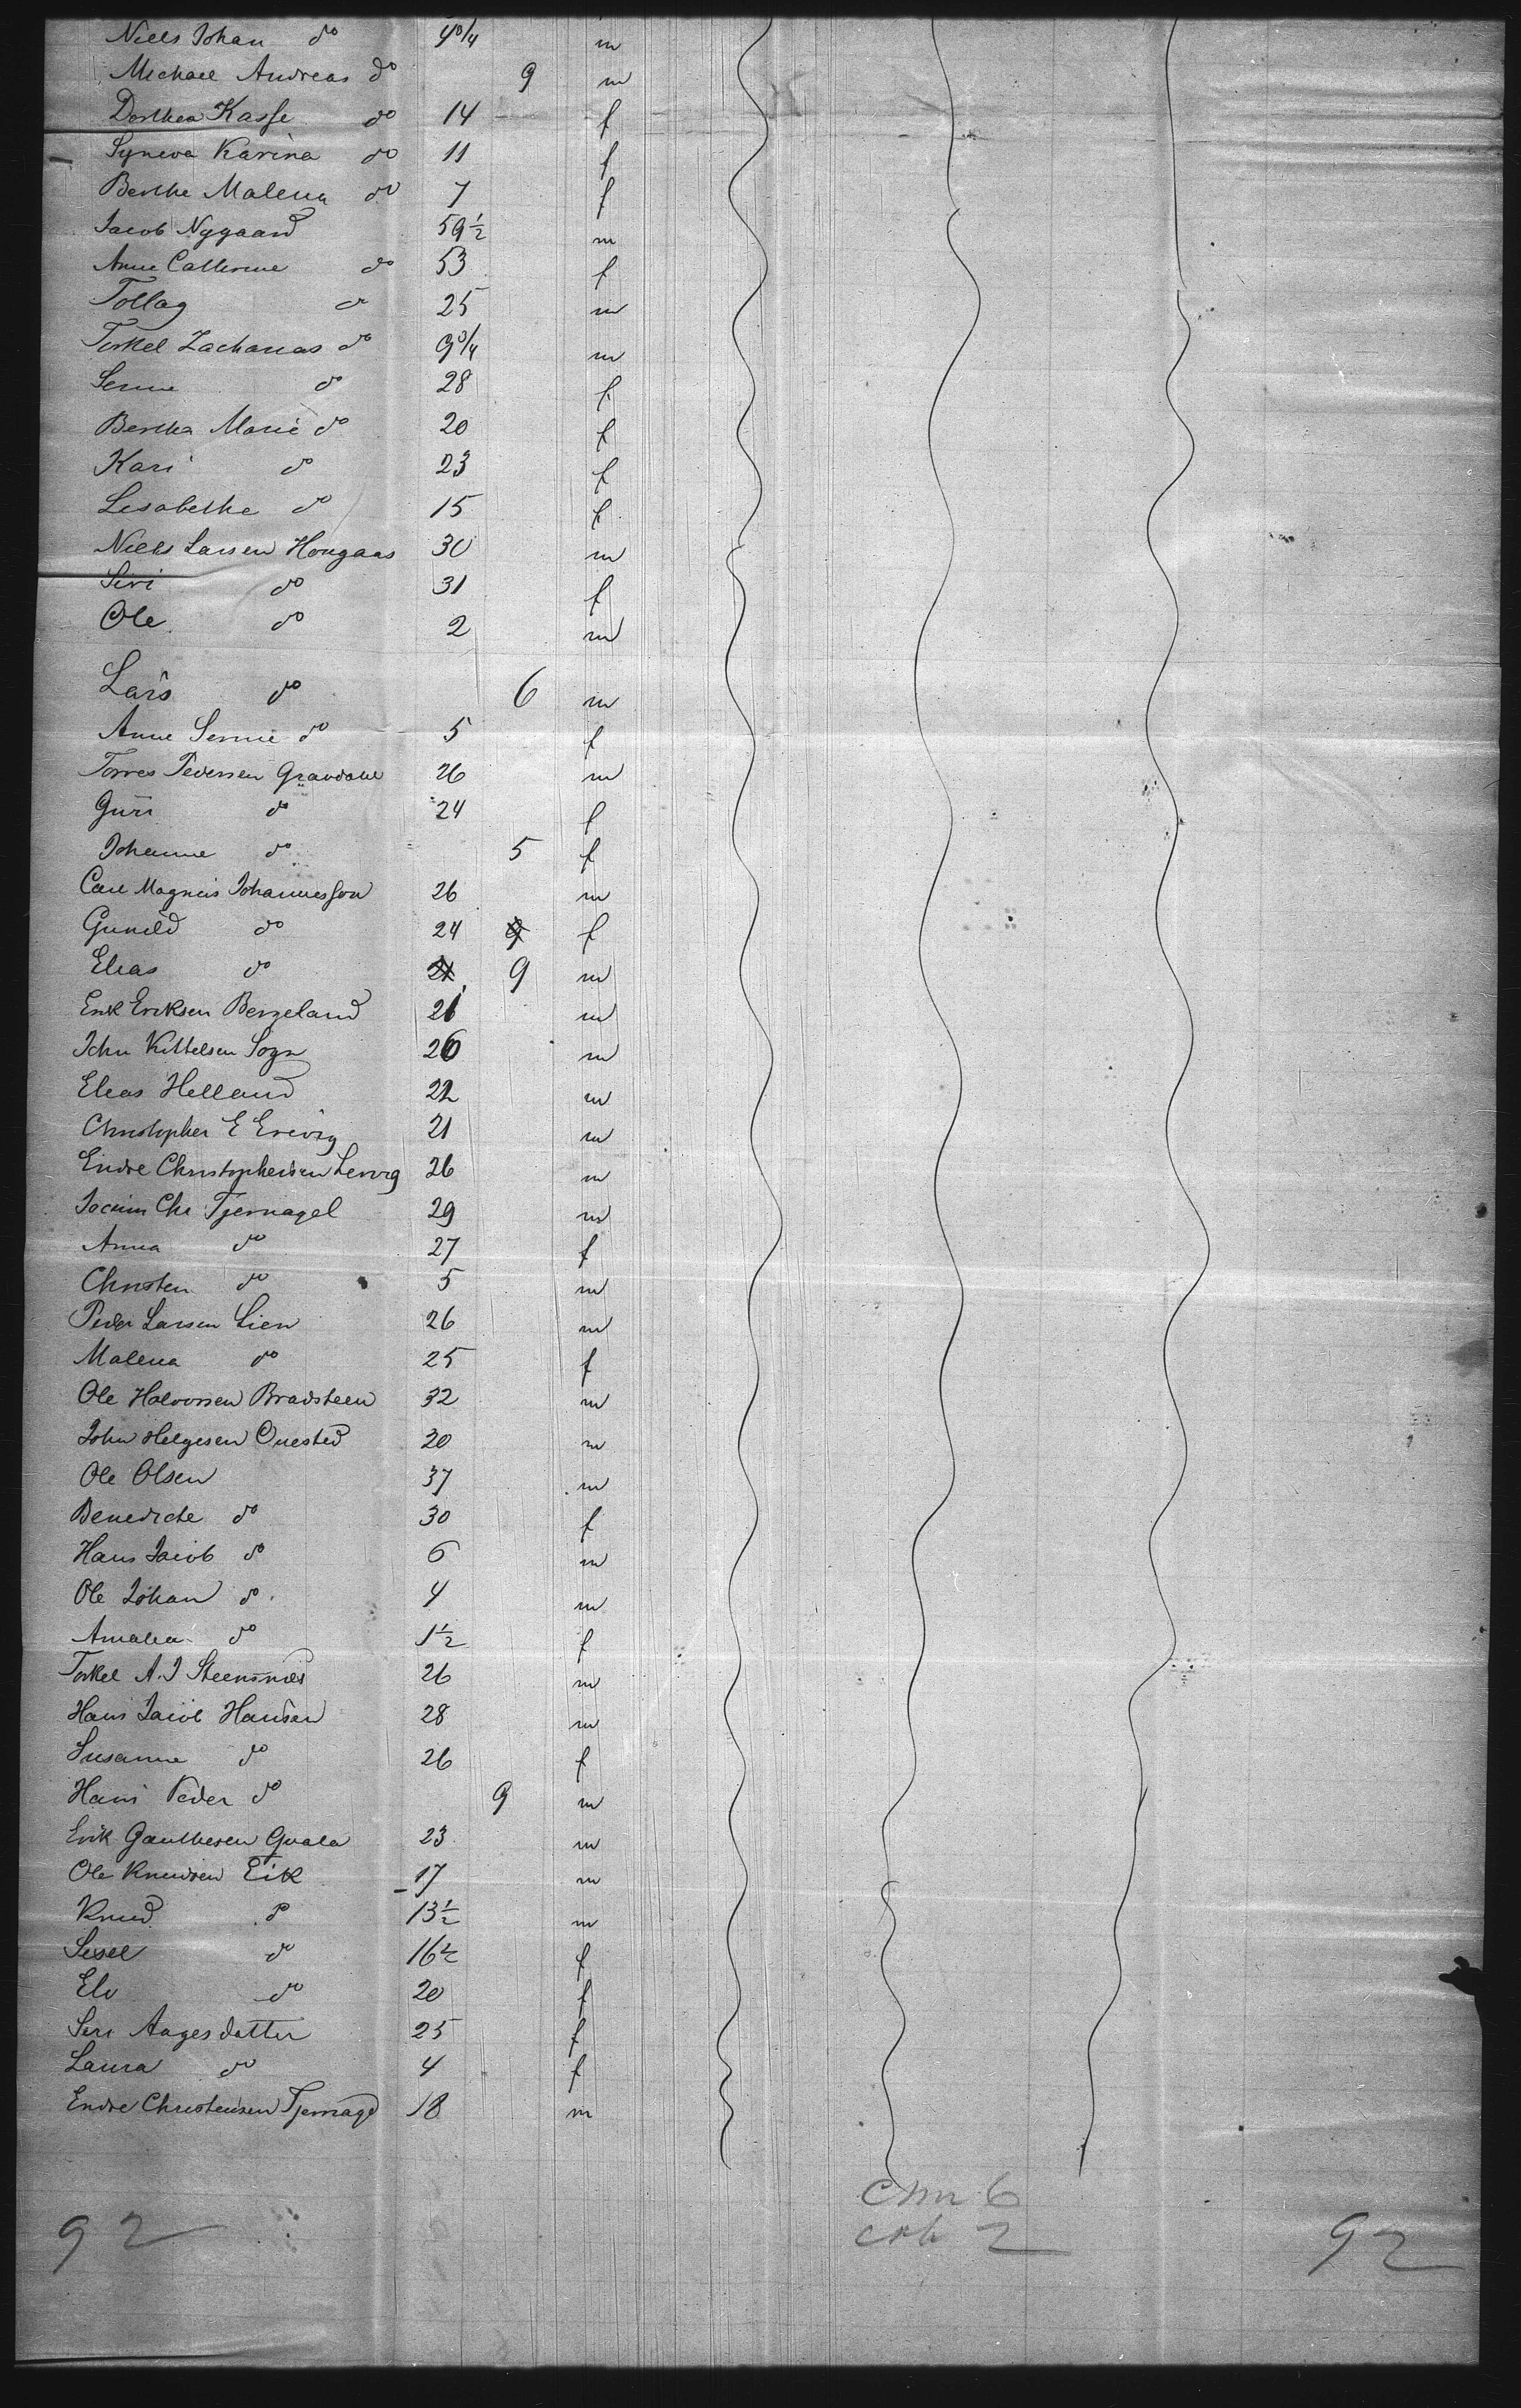 Niels Johan do 4 3/4 m
Michael Andreas do 9 m
Dorthea Kasse do 14 f
Syneva Karina do 11 f
Berthe Malena do 7 f
Jacob Nygaard 59 1/2 m
Anne Catherine do 53 f
Tollag do 25 m
Torkel Zacharias do 9 3/4 m
Serine do 28 f
Bertha Marie do 20 f
Kari do 23 f
Lisabethe do 15 f
Niels Larsen Hougaas 30 m
Siri do 31 f
Ole do 2 m
Lars do 6 m
Anne Serine do 5 f
Torres Pedersen Gravdahl 26 m
Guri do 24 f
Johanne do 5 f
Carl Magnus Johannesson 26 m
Gunild do 24 f
Elias do 9 m
Erik Eriksen Bergeland 21 m
John Kittelsen Sogn 26 m
Elias Helland 22 m
Christopher E 21 m
Endre Christophersen 26 m
Jocum Chr Tjernagel 29 m
Anna do 27 f
Christen do 5 m
Peder Larsen Lien 26 m
Malena do 25 f
Ole Halvorsen Bradsteen 32 m
John Helgesen Quested 20 m
Ole Olsen 37 m
Benedicte do 30 f
Hans Jacob do 6 m
Ole Johan do 4 m
Amalia do 1 1/2 f
Torkel A. J Steensnæs 26 m
Hans Jacob Hansen 28 m
Susanne do 26 f
Hans Peder do 9 m
Erik Gauthesen Gvala 23 m
Ole Knudsen Eik 17 m
Knud do 13 1/2 m
Sisel do 16 1/2 f
Eli do 20 f
Siri Aagesdatter 25 f
Laura do 4 f
Endre Christensen Tjernagel 18 m
6
92 2 92